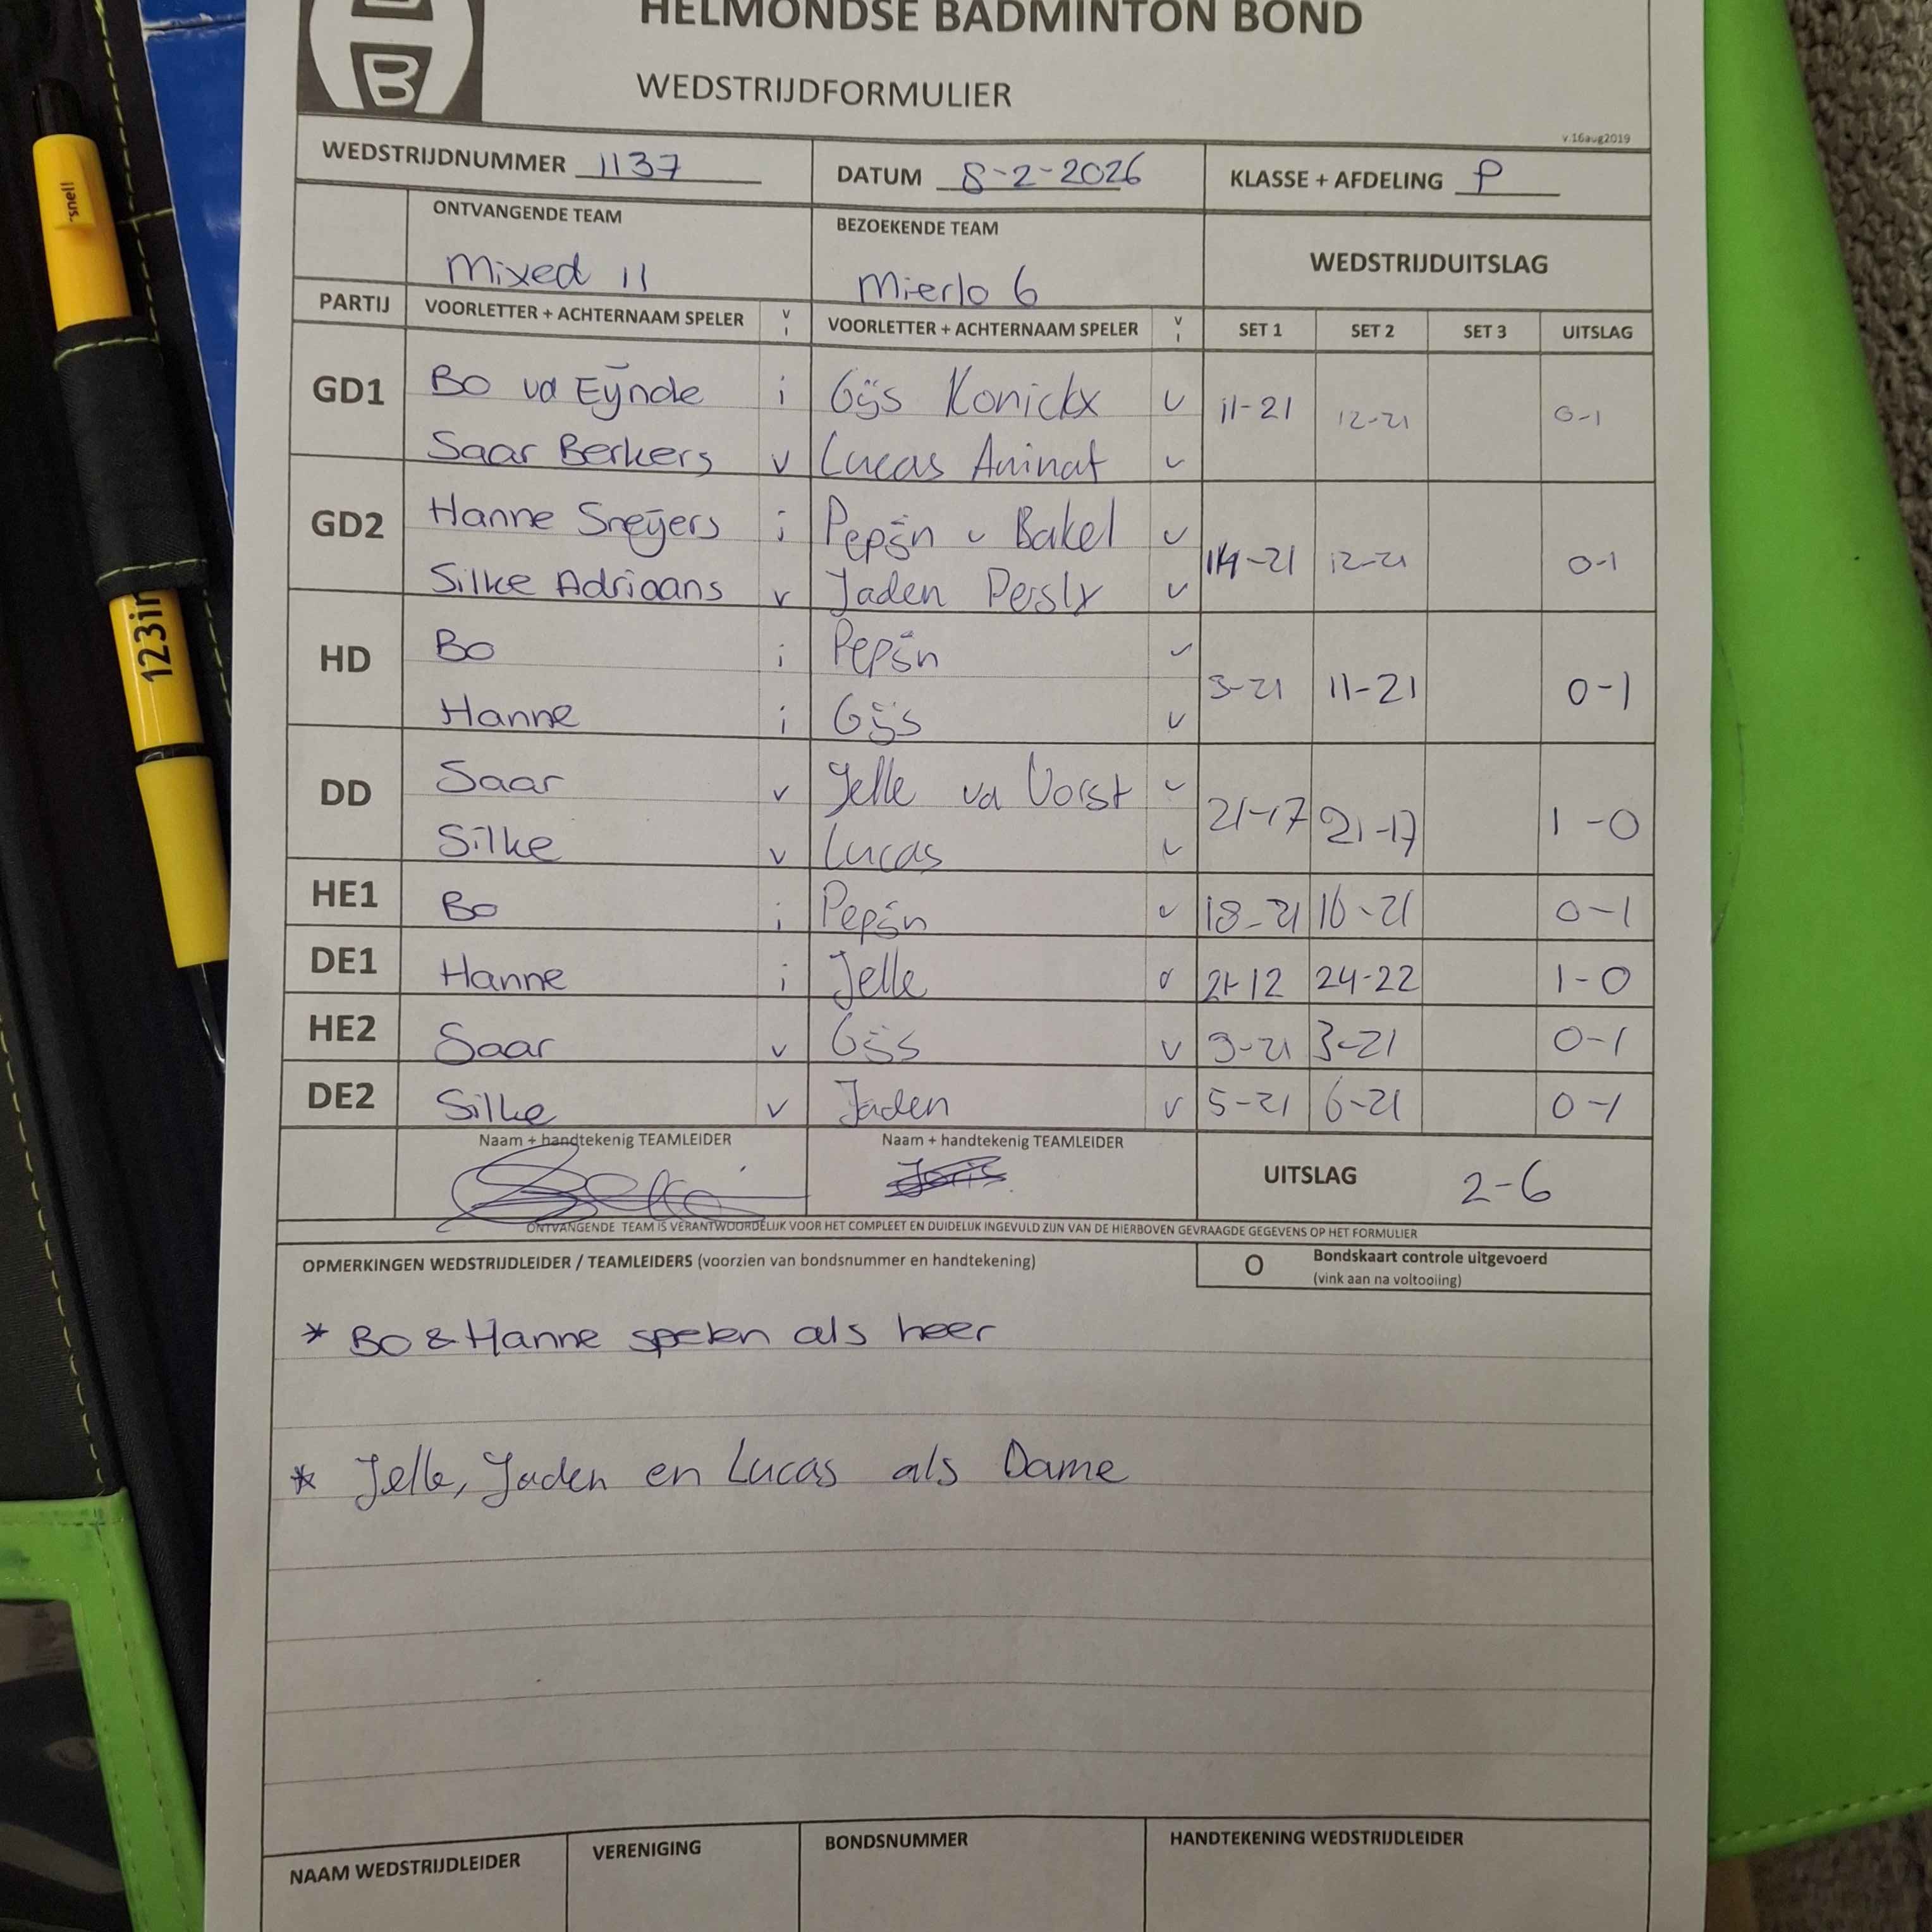 B
HELMONDSE BADMINTON BOND
WEDSTRIJDFORMULIER
v 16aug2019
WEDSTRIJDNUMMER 1137 DATUM 8-2-2026 KLASSE + AFDELING P
ONTVANGENDE TEAM BEZOEKENDE TEAM WEDSTRIJDUITSLAG
Mixed 11 Mierlo 6
PARTIJ VOORLETTER + ACHTERNAAM SPELER V I VOORLETTER + ACHTERNAAM SPELER V I SET 1 SET 2 SET 3 UITSLAG
GD1 Bo vd Eijnde i Gijs Konickx v 11-21 12-21 0-1
Saar Berkers v Lucas Aninat v
GD2 Hanne Sneijers i Pepijn v Bakel v 14-21 12-21 0-1
Silke Adriaans v Jaden v
HD Bo i Pepijn v 3-21 11-21 0-1
Hanne i Gijs v
DD Saar v Jelle vd Vorst v 21-17 21-17 1-0
Silke v Lucas v
HE1 Bo i Pepijn v 18-21 16-21 0-1
DE1 Hanne i Jelle v 21-12 24-22 1-0
HE2 Saar v Gijs v 3-21 3-21 0-1
DE2 Silke v Jaden v 5-21 6-21 0-1
Naam + handtekenig TEAMLEIDER Naam + handtekenig TEAMLEIDER
Joris UITSLAG 2-6
ONTVANGENDE TEAM IS VERANTWOORDELIJK VOOR HET COMPLEET EN DUIDELIJK INGEVULD ZIJN VAN DE HIERBOVEN GEVRAAGDE GEGEVENS OP HET FORMULIER
OPMERKINGEN WEDSTRIJDLEIDER / TEAMLEIDERS (voorzien van bondsnummer en handtekening) O Bondskaart controle uitgevoerd
(vink aan na voltooiing)
* Bo & Hanne spelen als heer
* Jelle, Jaden en Lucas als Dame
NAAM WEDSTRIJDLEIDER VERENIGING BONDSNUMMER HANDTEKENING WEDSTRIJDLEIDER
snell
123in